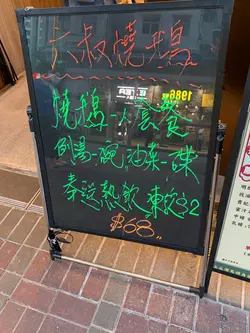 六叔燒鵝
燒鵝一人套餐
例湯一碗 油菜一碟
奉送熱飲 凍飲+2
$68
1986